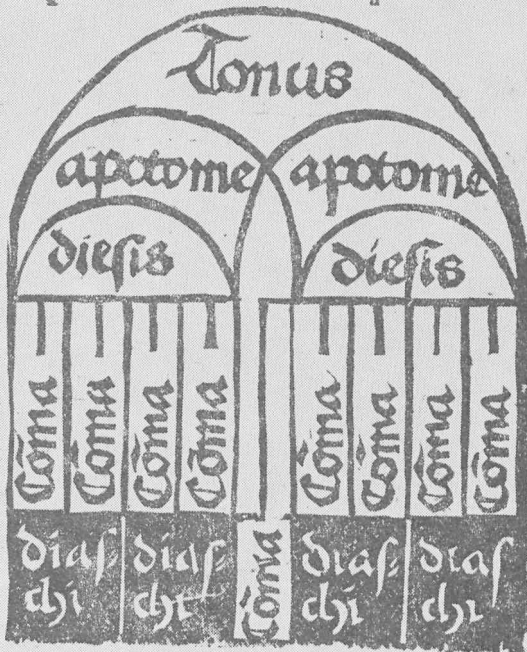 Tonus
apotome apotome
diesis diesis
Cōma Cōma Cōma Cōma Cōma Cōma Cōma Cōma
Cōma
diaſ- diaſ- diaſ- diaſ
chi chi chi chi